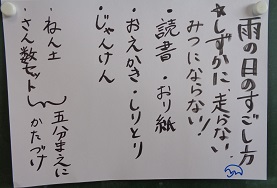 雨の日のすごし方
☆しずかに、走らない、
みつにならない!
・読書・おり紙
・おえかき・しりとり
・じゃんけん
・ねん土
・さん数セット
五分まえに
かたづけ